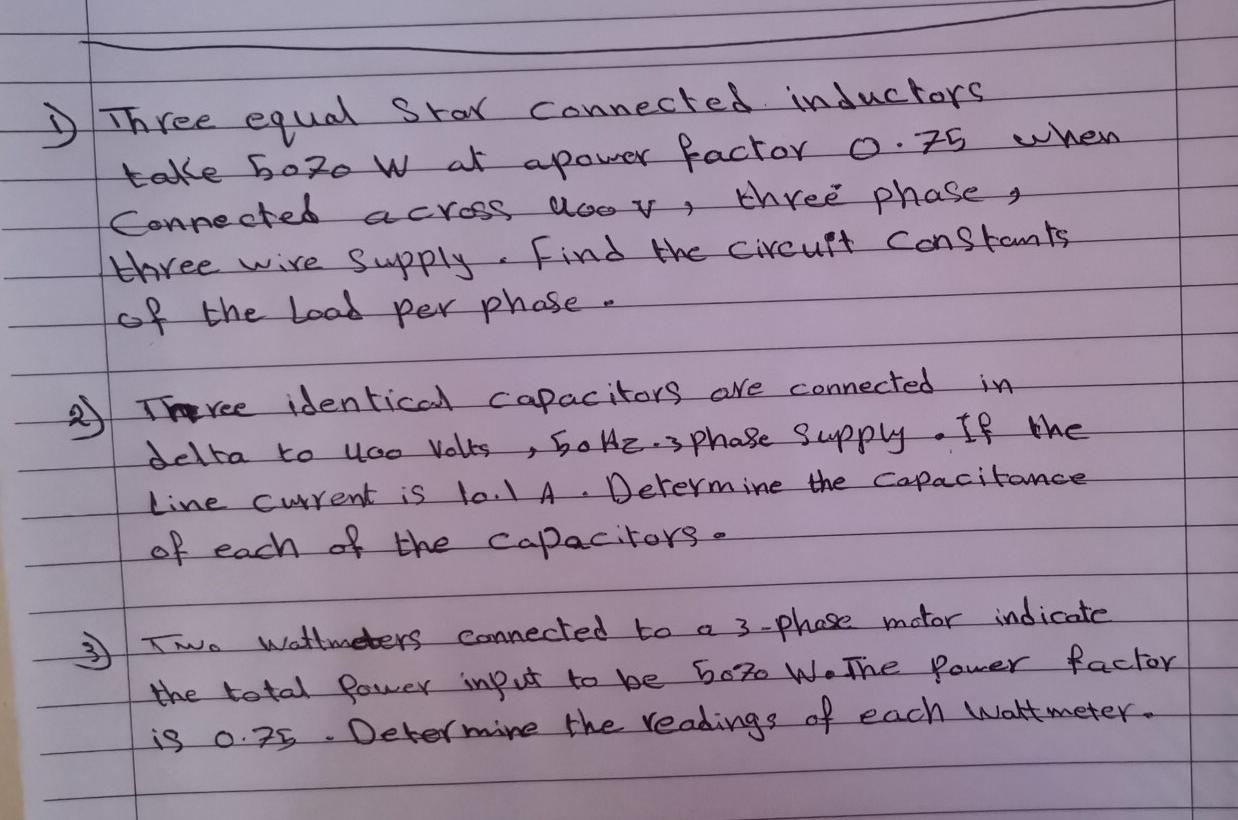 1) Three equal Star connected inductors
take 5070 W at a power factor 0.75 when
Connected across 400 V, three phase,
three wire supply. Find the circuit constants
of the Load per phase.
2) Three identical capacitors are connected in
delta to 400 Volts, 50 Hz. 3 phase supply. If the
Line current is 10.1 A. Determine the capacitance
of each of the capacitors.
3) Two Wattmeters connected to a 3-phase motor indicate
the total power input to be 5070 W. The power factor
is 0.75. Determine the readings of each Wattmeter.